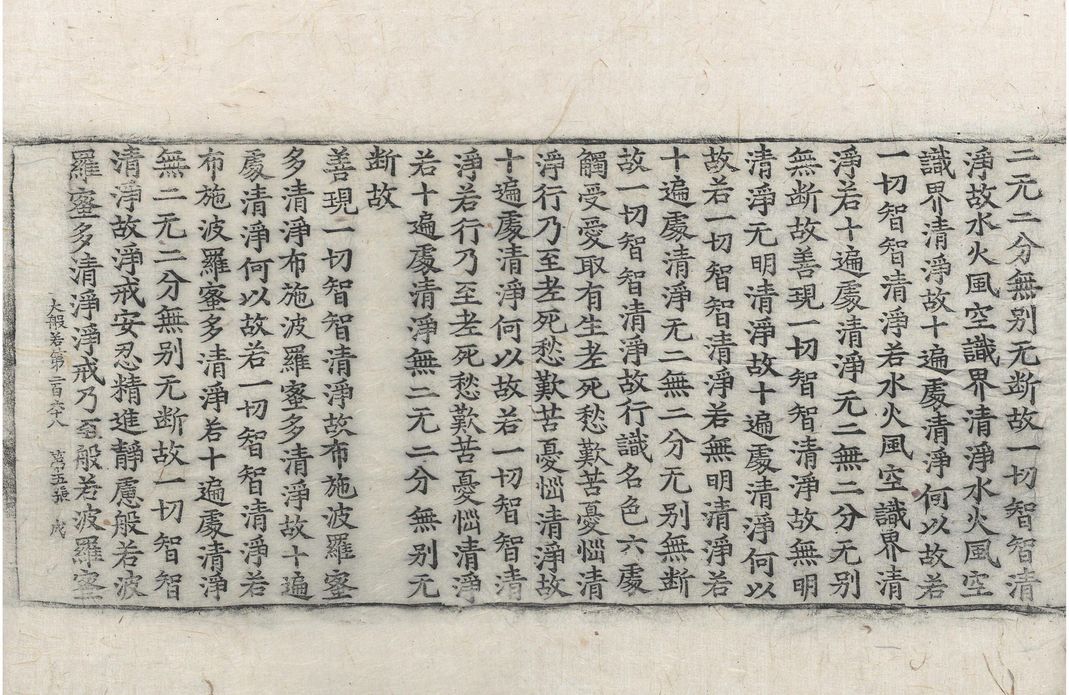 二无二分無别无断故一切智智清
淨故水火風空識界清淨水火風空
識界清淨故十遍處清淨何以故若
一切智智清淨若水火風空識界清
淨若十遍處清淨无二無二分无别
無断故善現一切智智清淨故無明
清淨无明清淨故十遍處清淨何以
故若一切智智清淨若無明清淨若
十遍處清淨无二無二分无别無断
故一切智智清淨故行識名色六處
觸受愛取有生老死愁歎苦憂惱清
淨行乃至老死愁歎苦憂惱清淨故
十遍處清淨何以故若一切智智清
淨若行乃至老死愁歎苦憂惱清淨
若十遍處清淨無二无二分無别无
断故
善現一切智智清淨故布施波羅蜜
多清淨布施波羅蜜多清淨故十遍
處清淨何以故若一切智智清淨若
布施波羅蜜多清淨若十遍處清淨
無二无二分無别无断故一切智智
清淨故淨戒安忍精進靜慮般若波
羅蜜多清淨淨戒乃至般若波羅蜜
大般若第二百六十八 第五張 戍